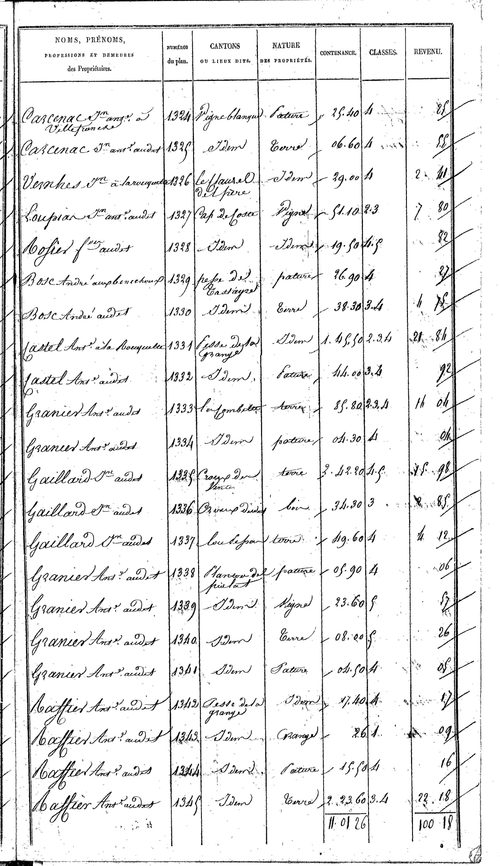 NOMS, PRÉNOMS, PROFESSIONS ET DEMEURES des Propriétaires. NUMÉROS du plan. CANTONS OU LIEUX DITS. NATURE DES PROPRIÉTÉS. CONTENANCE. CLASSES. REVENU.
Carcenac Jn ant.e à Villefranche 1324 Vigneblanque Pature 25.40 4 25
Carcenac Jn ant.e audit 1325 Idem Terre 06.60 4 55
Vernhes à 1326 Idem 29.00 4 2 41
Loupiac Jn ant.e audit 1327 Cap de Coste Vigne 51.10 2.3 7 80
Rosier audit 1328 Idem Idem 19.50 4.5 82
Bosc André 1329 pesse de pature 26.90 4 27
Bosc André audit 1330 Idem Terre 38.30 3.4 75
Castel Ant.e à la Rouquette 1331 Pesse de la grange Idem 1.45.50 2.3.4 21 84
Castel Ant.e audit 1332 Idem Pature 44.00 3.4 92
Granier Ant.e audit 1333 terre 85.80 2.3.4 04
Granier Ant.e audit 1334 Idem pature 04.30 4 04
Gaillard Jn audit 1335 terre 3.42.20 4.5 15 98
Gaillard Jn audit 1336 34.30 3 85
Gaillard Jn audit 1337 terre 49.60 4 4 12
Granier Ant.e audit 1338 pature 05.90 4 06
Granier Ant.e audit 1339 Idem Vigne 23.60 5 57
Granier Ant.e audit 1340 Idem Terre 08.00 5 26
Granier Ant.e audit 1341 Idem Pature 04.50 4 05
Raffier Ant.e audit 1342 Pesse de la grange Idem 17.40 4 17
Raffier Ant.e audit 1343 Idem Grange 26 1 09
Raffier Ant.e audit 1344 Idem Pature 15.50 4 16
Raffier Ant.e audit 1345 Idem Terre 2.23.60 3.4 22 18
11 01 26 100 18